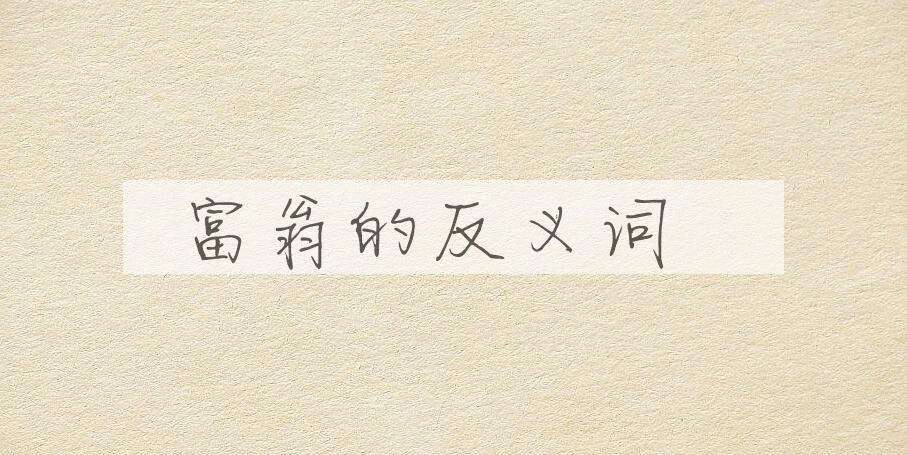 富翁的反义词